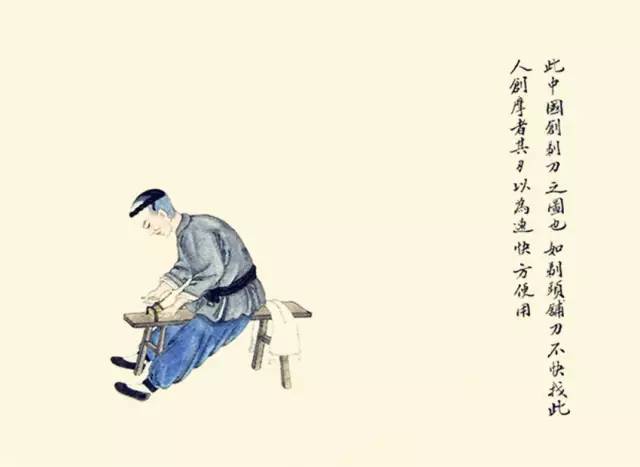 此中國創剃刀之圖也如剃頭鋪刀不快找此
人創摩者其刀以為逸快方便用